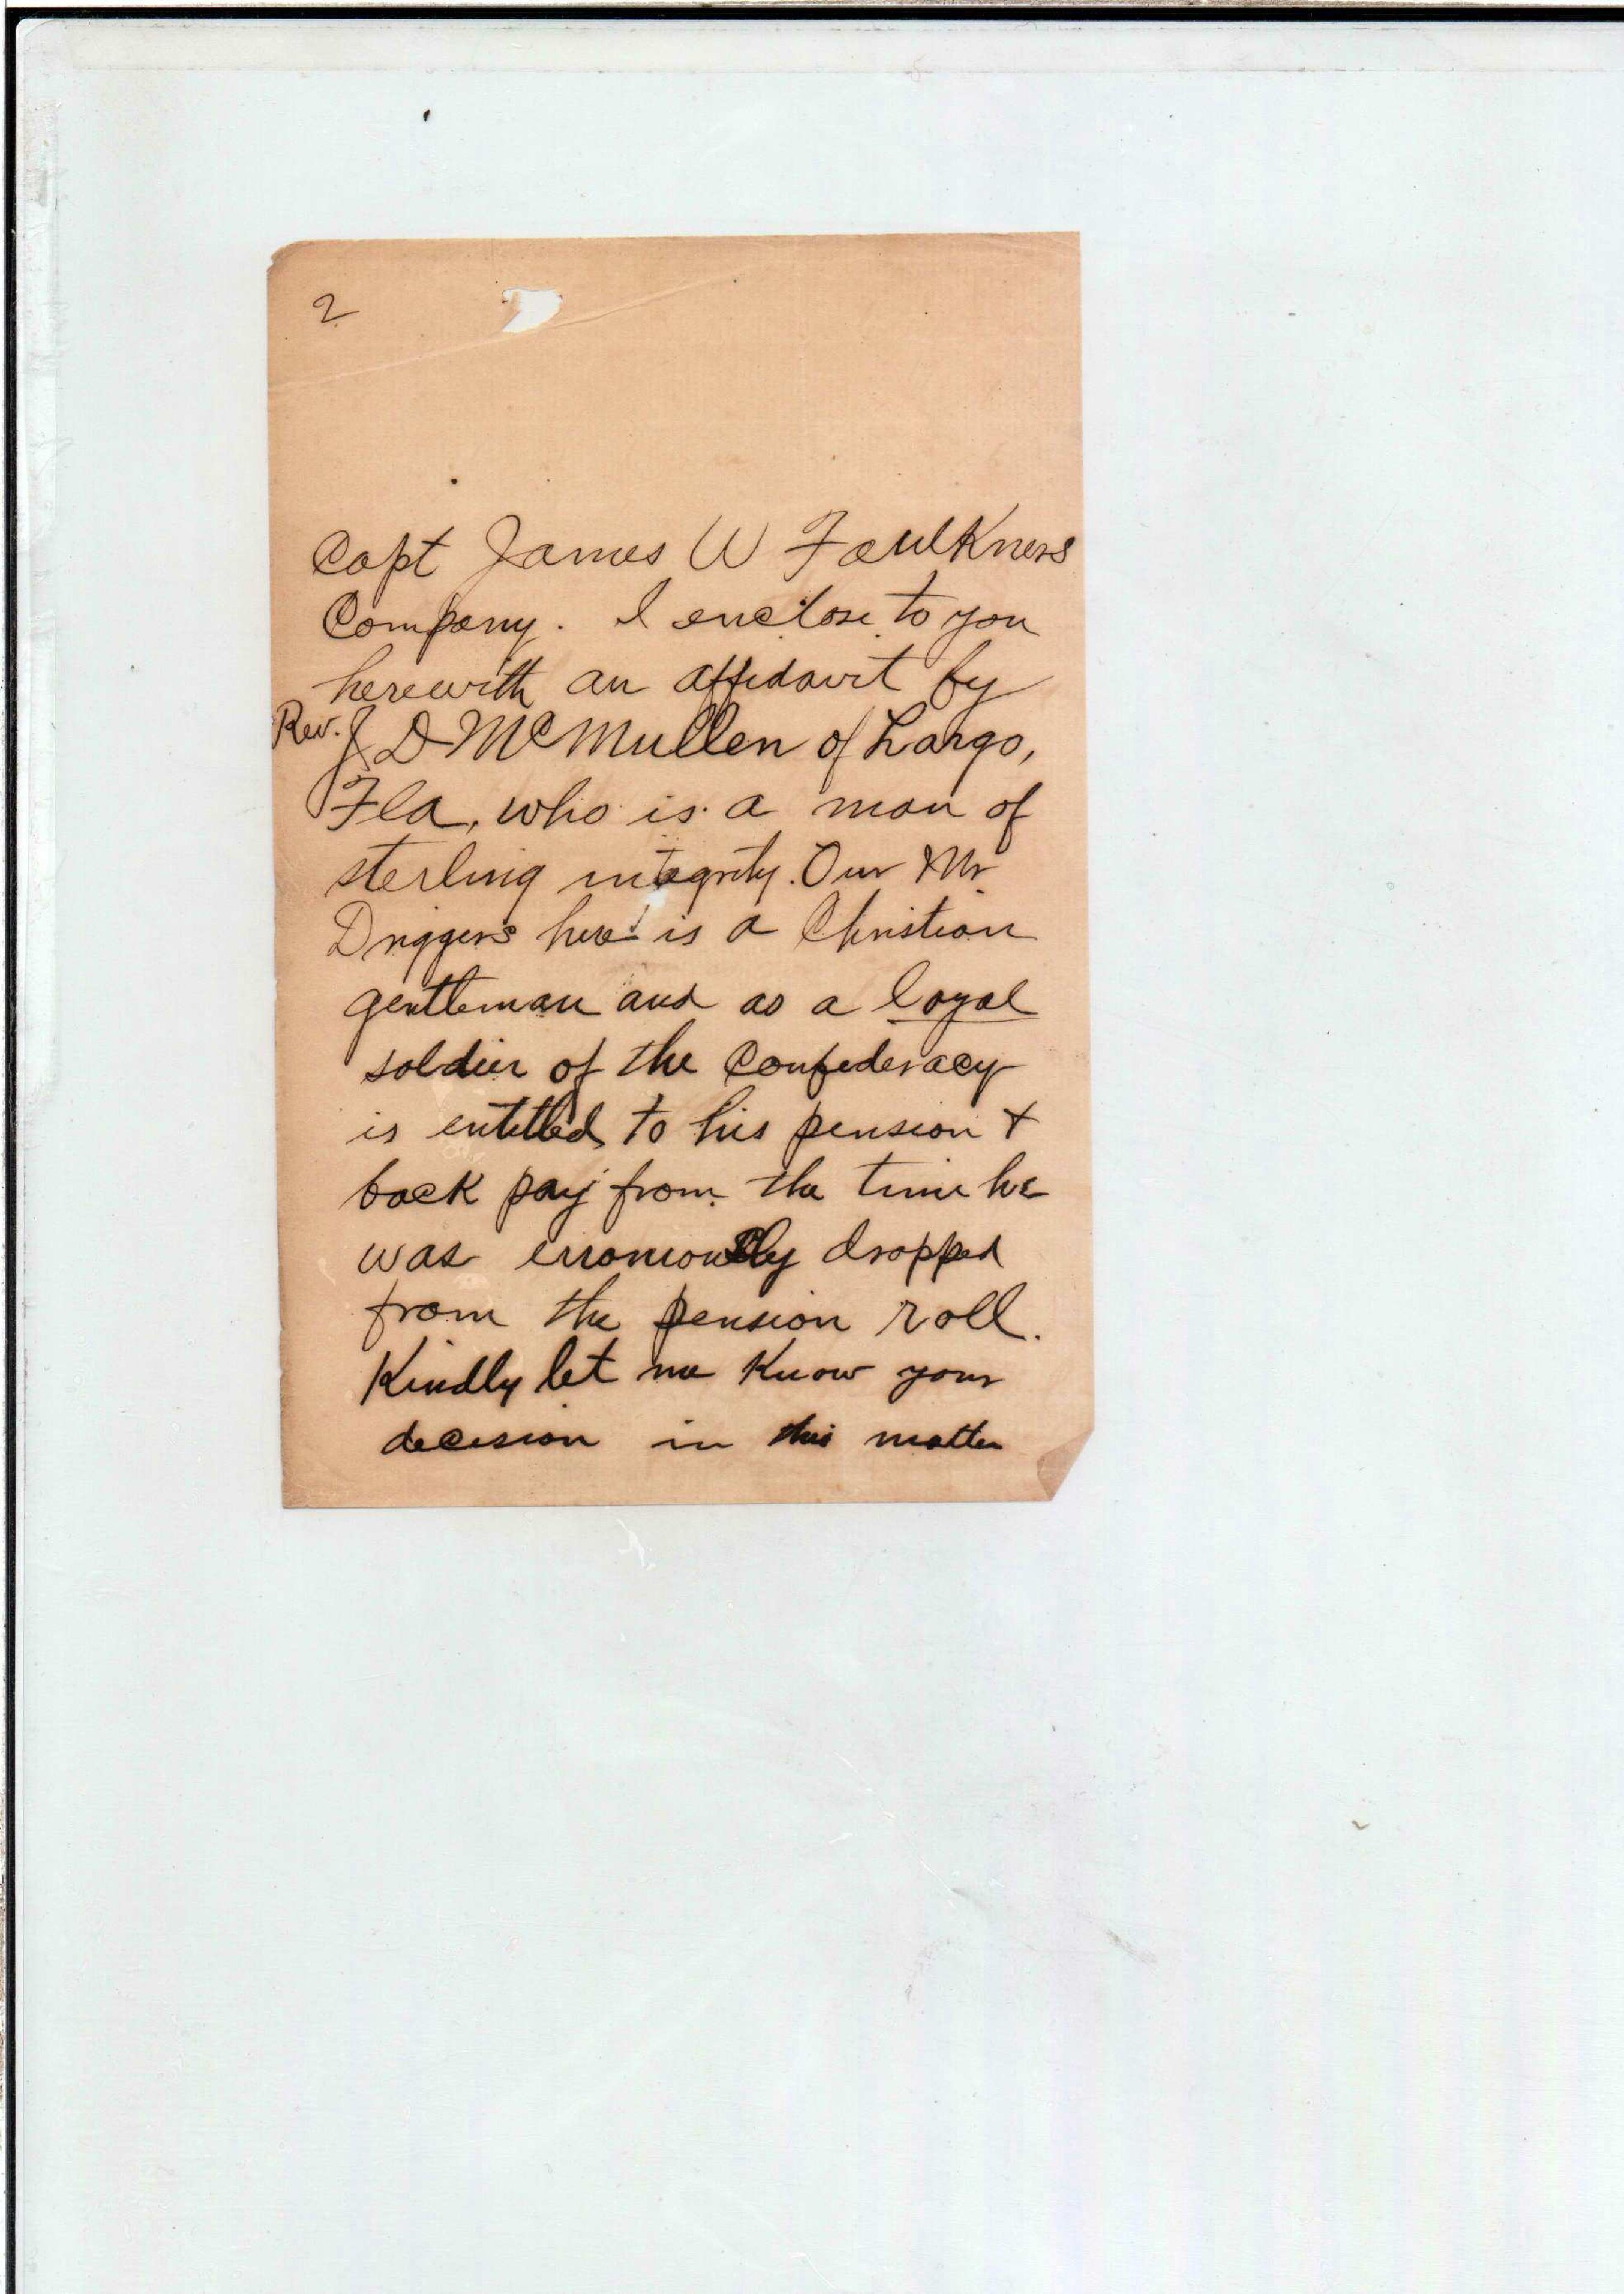 2
Capt James W Faulkners
Company. I enclose to you
herewith an affidavit by
Rev. J D McMullen of Largo,
Fla, who is a man of
sterling integrity. Our Mr
Driggers here is a Christian
gentleman and as a loyal
soldier of the Confederacy
is entitled to his pension &
back pay from the time he
was erroniously dropped
from the pension roll.
Kindly let me Know your
decision in this matter